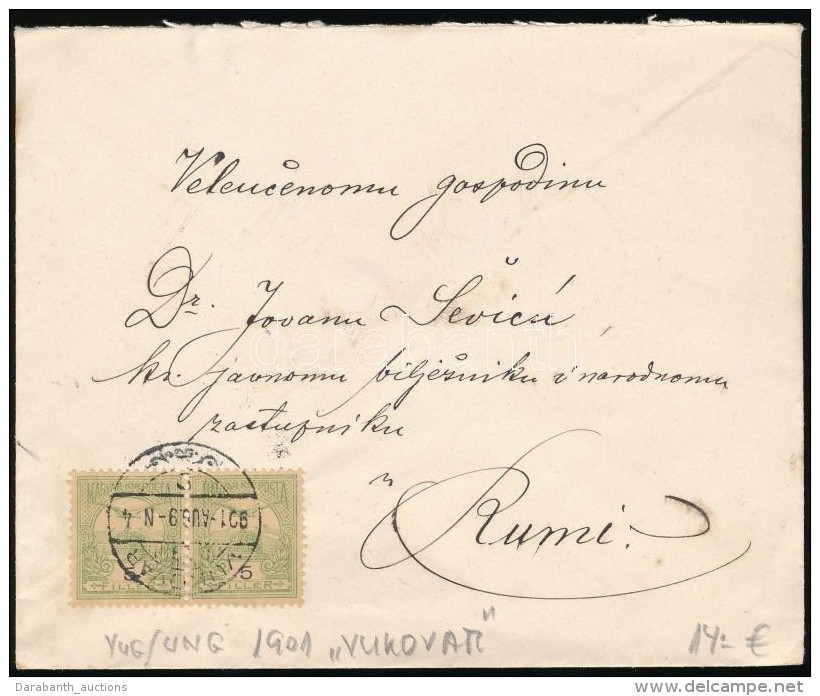 Veleučenomu gospodinu
Dr. Jovanu Ševiću
kr. javnomu bilježniku i narodnomu
zastupniku
u
Rumi.
MAGYAR KIR. POSTA
901-AUG.9-N-4
5 5
FILLER FILLER
YUG/UNG 1901 "VUKOVAR" 14.- €
darabanth
Darabanth_auctions www.delcampe.net